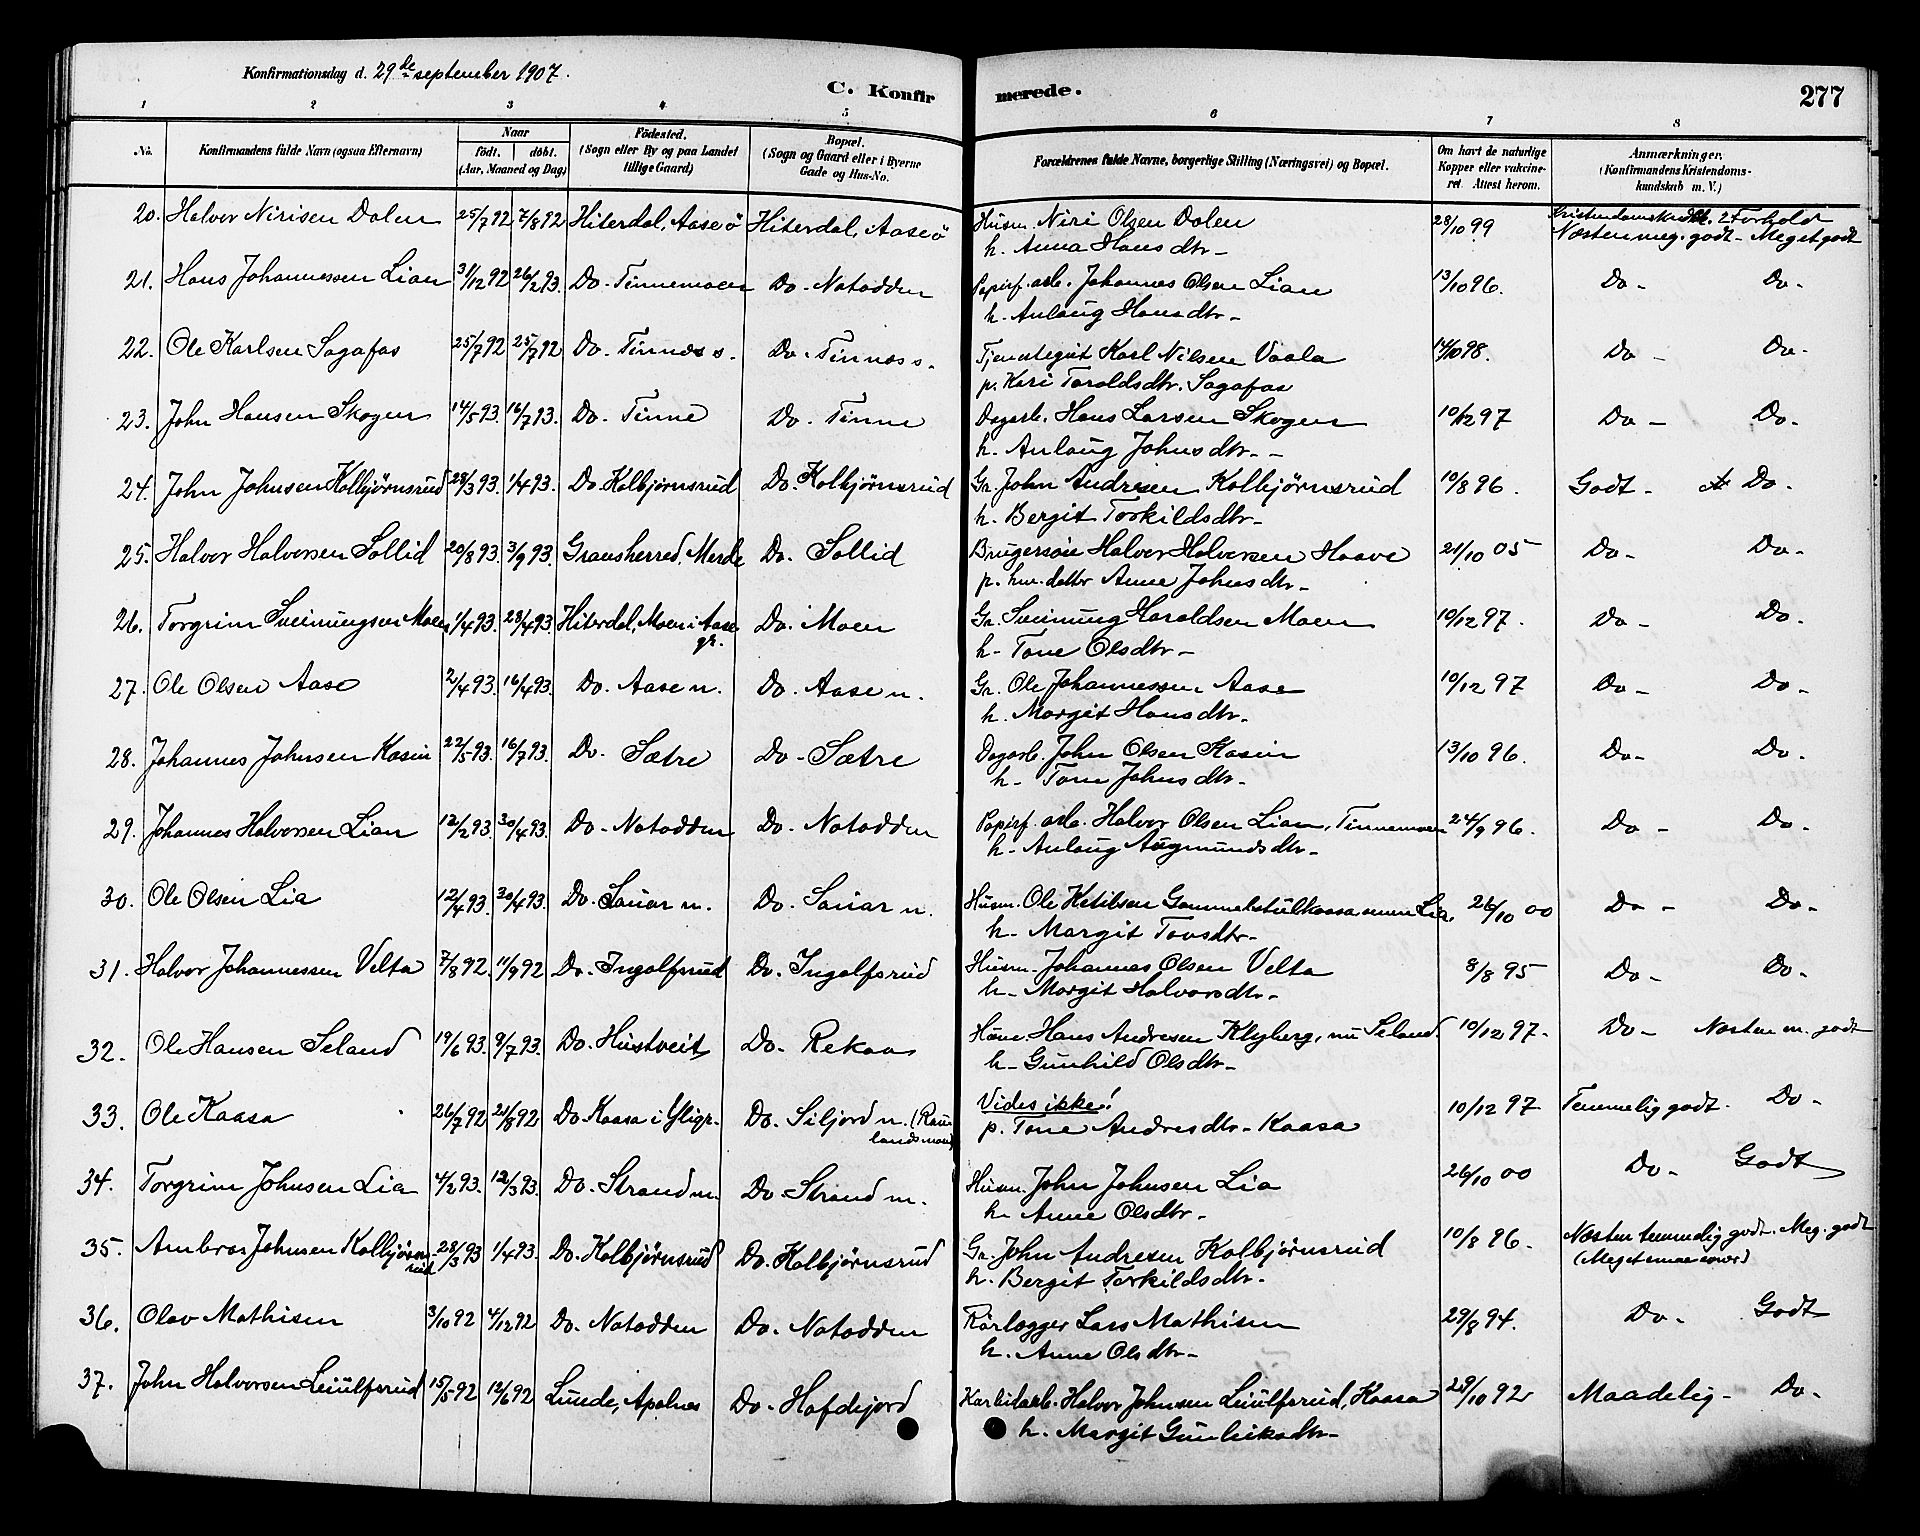 Konfirmationsdag d. 29de september 1907.
C. Konfirmerede.
277
1 2 3 4 5 6 7 8
No. Konfirmandens fulde Navn (ogsaa Efternavn) Naar födt. döbt. (Aar, Maaned og Dag) Födested. (Sogn eller By og paa Landet tillige Gaard) Bopæl. (Sogn og Gaard eller i Byerne Gade og Hus-No. Forældrenes fulde Navne, borgerlige Stilling (Næringsvei) og Bopæl. Om havt de naturlige Kopper eller vakcineret. Attest herom. Anmærkninger. (Konfirmandens Kristendomskundskab m. V.)
20. Halvor Nirisen Dalen 25/7 92 7/8 92 Hiterdal, Aase ö Hiterdal, Aase ö Husm. Niri Olsen Dalen 28/10 99 Kristendomskundsk. 2 Forhold
h. Anna Hansdtr - Næsten meg. godt - Meget godt
21. Hans Johannessen Lian 31/12 92 26/2 93. Do - Tinnemoen Do - Notodden Papirf. arb. Johannes Olsen Lian 13/10 96. Do - Do -
h. Anlaug Hansdtr -
22. Ole Karlsen Sagafos 25/7 92 25/7 92 Do - Tinnæs s. Do - Tinnæs s. Tjenestegut Karl Nilsen Vaala 14/10 98. Do - Do -
p. Kari Taraldsdtr. Sagafos
23. John Hansen Skogen 14/5 93. 16/7 93. Do - Tinne Do - Tinne Dagarb. Hans Larsen Skogen 10/12 97 Do - Do -
h. Anlaug Johnsdtr -
24. John Johnsen Kolbjørnsrud 28/3 93. 1/4 93. Do. Kolbjørnsrud Do. Kolbjørnsrud Gr. John Andresen Kolbjørnsrud 10/8 96. Godt - Do -
h. Bergit Torkildsdtr -
25. Halvor Halvorsen Sollid 20/8 93. 3/9 93. Gransherred, Merde Do - Sollid Brugersön Halvor Halvorsen Haave 21/10 05 Do - Do -
p. hm. datter Anne Johnsdtr -
26. Torgrim Sveinungsen Moen 1/4 93. 23/4 93 Hiterdal, Moen i Aase gr. Do. Moen Gr. Sveinung Haraldsen Moen 10/12 97. Do - Do -
h - Tone Olsdtr -
27. Ole Olsen Aase 2/4 93. 16/4 93. Do. Aase n. Do. Aase n. Gr. Ole Johannessen Aase 10/12 97 Do - Do -
h. Margit Hansdtr.
28. Johannes Johnsen Kasin 22/5 93. 16/7 93. Do - Sætre Do - Sætre Dagarb. John Olsen Kasin 13/10 96. Do - Do -
h - Tone Johnsdtr -
29. Johannes Halvorsen Lian 12/2 93. 30/4 93. Do - Notodden Do - Notodden Papirf. arb. Halvor Olsen Lian, Tinnemoen 24/9 96. Do - Do -
h - Anlaug Augmundsdtr -
30. Ole Olsen Lia 12/4 93. 30/4 93. Do. Sauar n. Do. Sauar n. Husm. Ole Ketilsen Gammelstulkaasa, nu Lia. 26/10 00 Do - Do -
h - Margit Tovsdtr -
31. Halvor Johannessen Velta 7/8 92 11/9 92 Do. Ingolfsrud Do. Ingolfsrud Husm. Johannes Olsen Velta 8/8 95 Do - Do -
h - Margit Halvorsdtr -
32. Ole Hansen Seland 19/6 93. 9/7 93. Do. Hustveit Do. Rekaa Hans Andresen Klyberg, nu Seland. 10/12 97 - Do - Næsten m. godt
h - Gunhild Olsdtr -
33. Ole Kaasa 26/7 92 21/8 92 Do. Kaasa i Yligr. Do. Siljord n. (Raulandsmoen) Vides ikke! 10/12 97 Temmelig godt. Do -
p. Tone Andresdtr - Kaasa
34. Torgrim Johnsen Lia 4/2 93. 12/3 93. Do - Strand n. Do Strand n. Husm. John Johnsen Lia 26/10 00 Do - Godt
h - Anne Olsdtr -
35. Ambros Johnsen Kolbjørnsrud 28/3 93 1/4 93. Do. Kolbjørnsrud Do. Kolbjørnsrud Gr. John Andresen Kolbjørnsrud 10/8 96. Næsten temmelig godt. Meg. godt
h. Bergit Torkildsdtr -
36. Olav Mathisen 3/10 92 4/12 92 Do. Notodden Do. Notodden Rörlægger Lars Mathisen 29/8 94. Do - Godt
h. Anne Olsdtr -
37. John Halvorsen Leiulfsrud 15/5 92 12/6 92 Lunde, Apalnes Do - Hafdejord Karbidarb. Halvor Johnsen Leiulfsrud, Kaasa 29/10 92 Maadelig - Do -
h. Margit Gunleiksdtr -